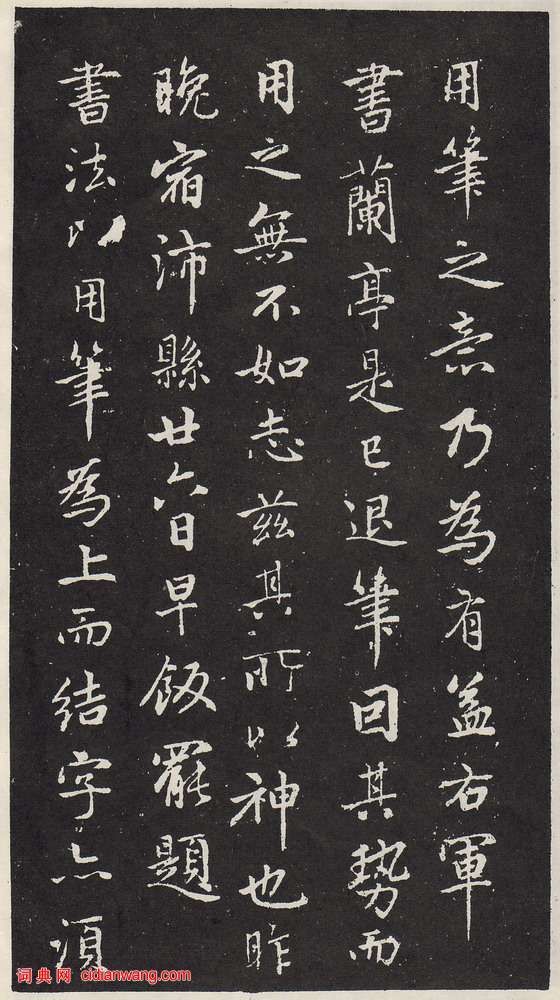 用筆之意乃為有益右軍
書蘭亭是已退筆因其勢而
用之無不如志茲其所以神也昨
晚宿沛縣廿六日早飯罷題
書法以用筆為上而結字亦須
词典网 cidianwang.com